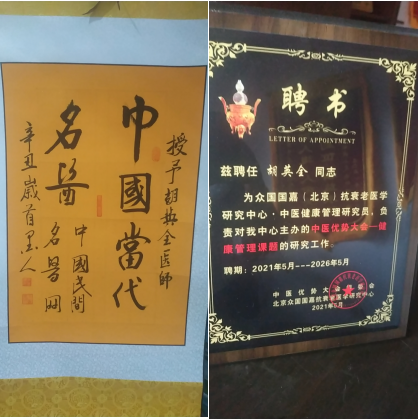 授予胡英全医师
中國當代
名醫
中國民間
名醫网
辛丑歲首墨人
聘书
LETTER OF APPOINTMENT
兹聘任 胡英全 同志
为众国国嘉（北京）抗衰老医学
研究中心·中医健康管理研究员，负
责对我中心主办的中医优势大会—健
康管理课题的研究工作。
聘期：2021年5月---2026年5月
中医优势大会组委会
北京众国国嘉抗衰老医学研究中心
2021年5月